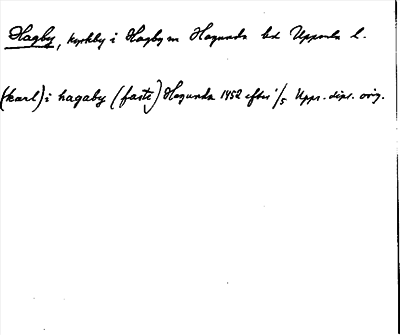 Hagby, kyrkby i Hagby sn Hagunda hd Uppsala l.
(karl) i hagaby (faste) Hagunda 1452 efter 1/5 Upps. dipl. orig.